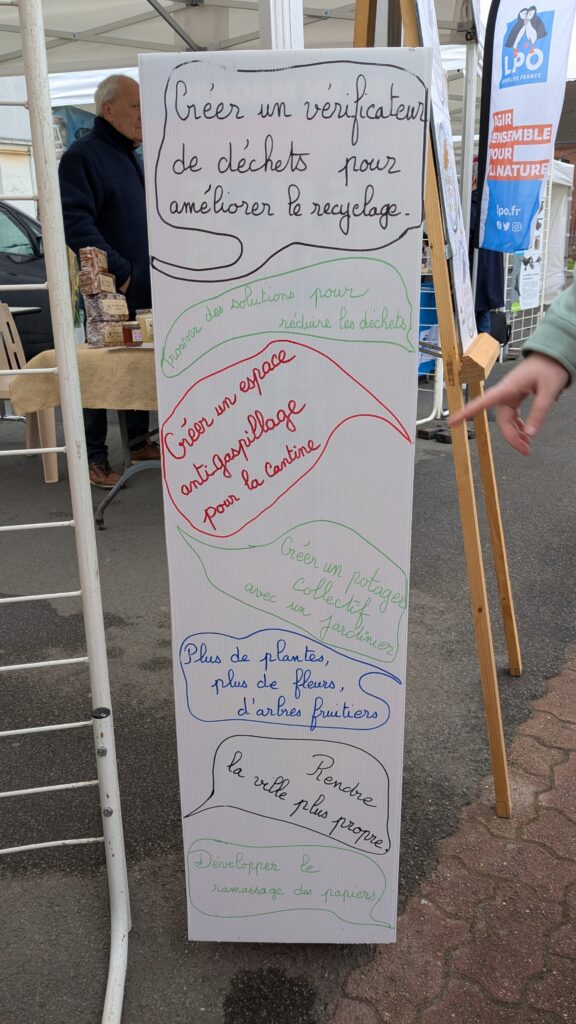 Créer un vérificateur
de déchets pour
améliorer le recyclage.
Trouver des solutions pour
réduire les déchets
Créer un espace
antigaspillage
pour la cantine
Créer un potager
collectif
avec un jardinier
Plus de plantes,
plus de fleurs,
d'arbres fruitiers
Rendre
la ville plus propre
Développer le
ramassage des papiers
LPO
AGIR
ENSEMBLE
POUR
LA NATURE
lpo.fr